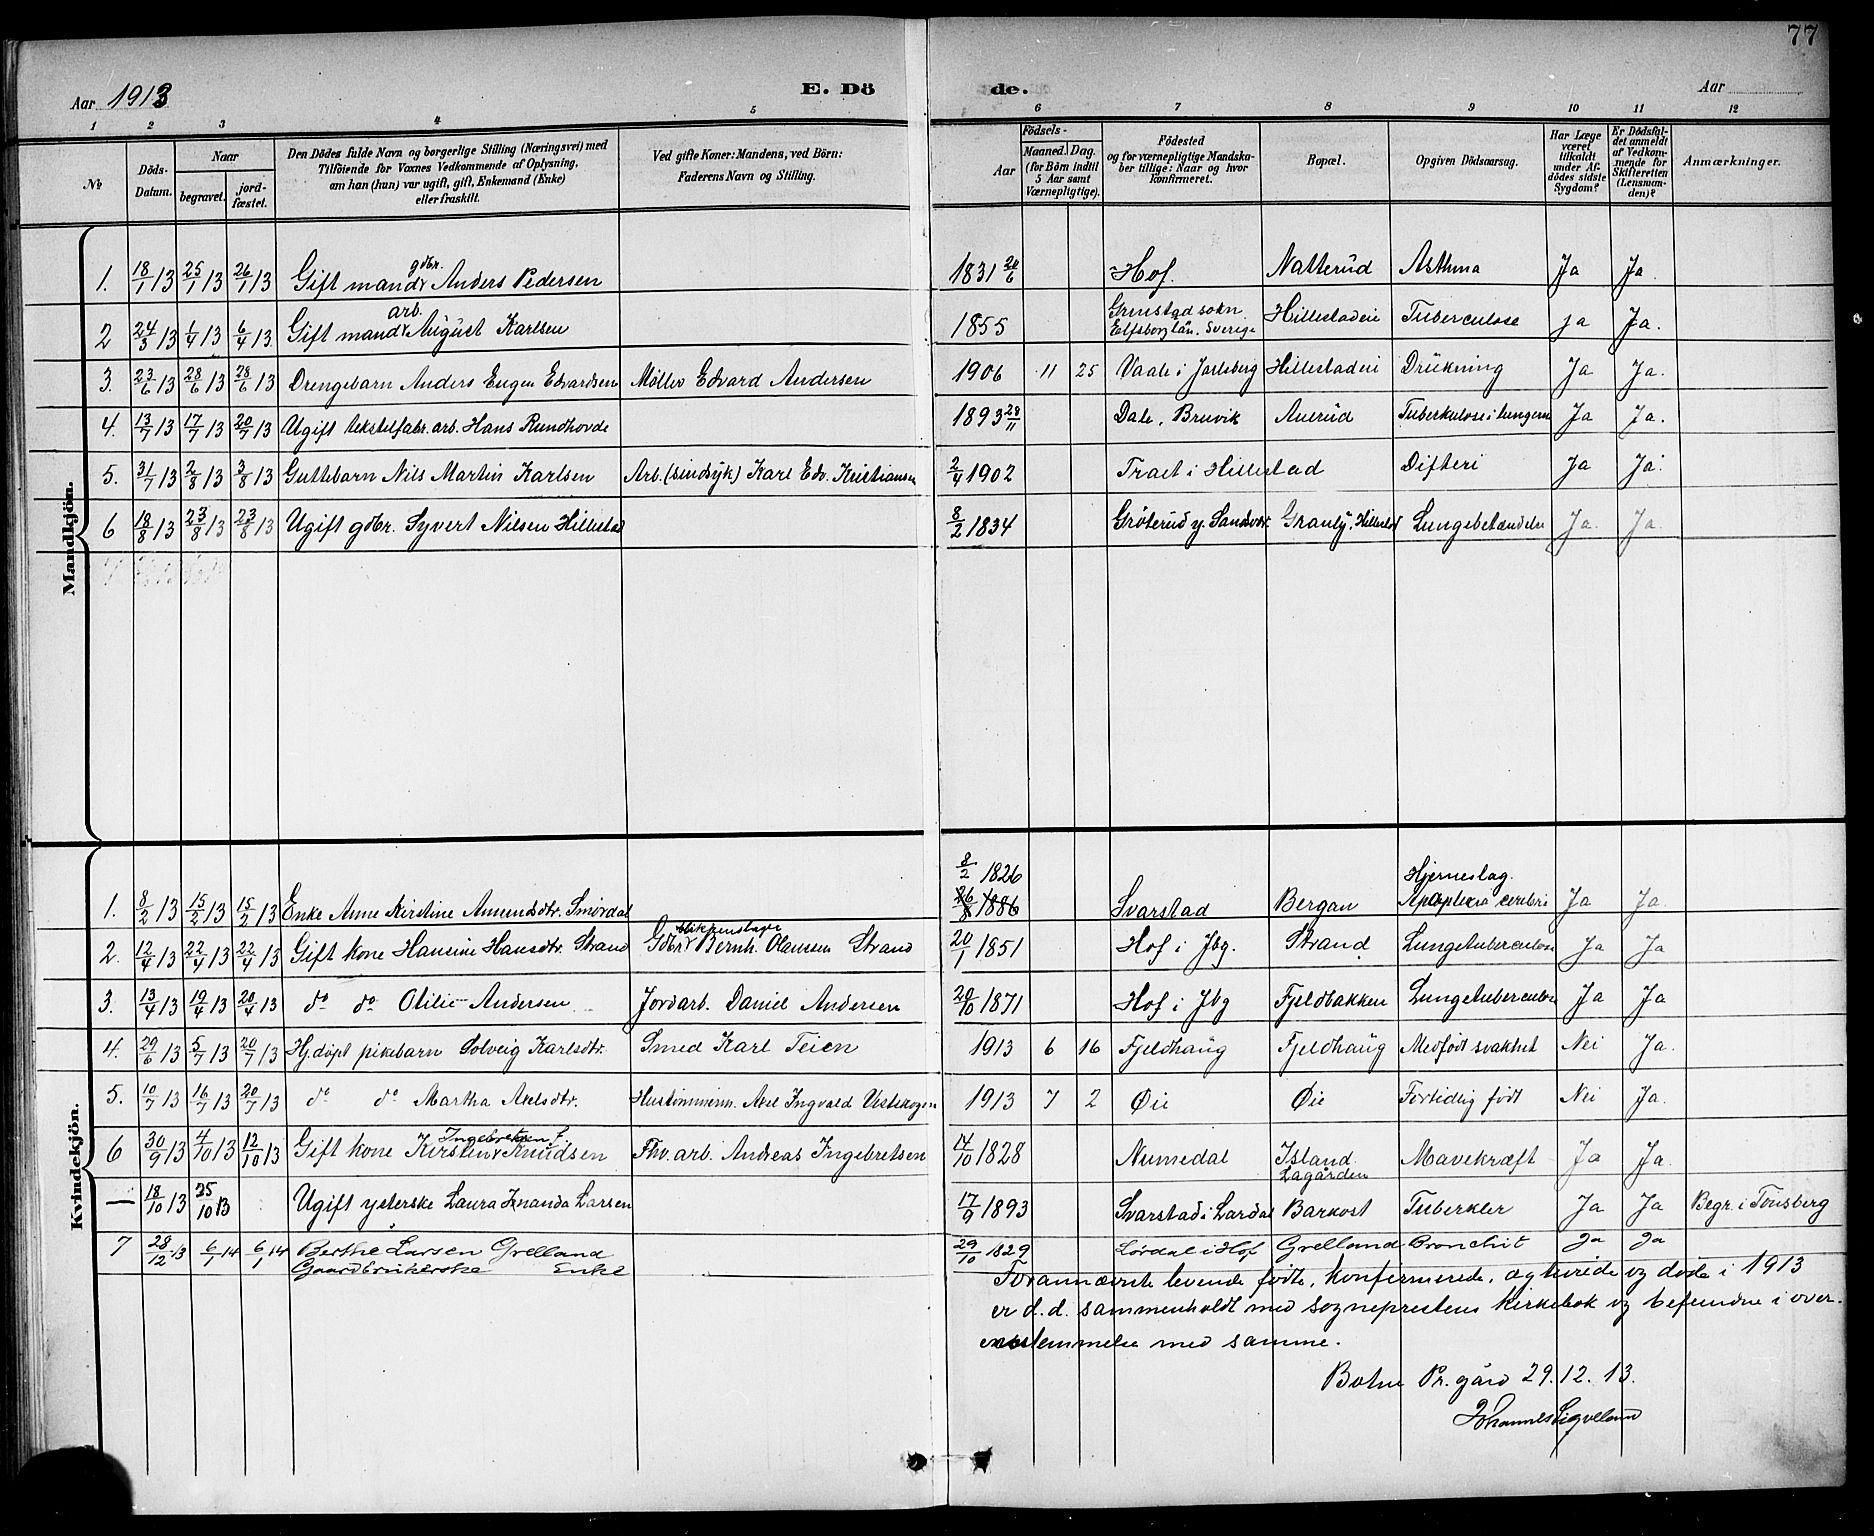 77
Aar 1913 E. Dö de. Aar
1 2 3 4 5 6 7 8 9 10 11 12
№ Döds-Datum. Naar begravet. jord-fæstet. Den Dödes fulde Navn og borgerlige Stilling (Næringsvei) med Tilföiende for Voxnes Vedkommende af Oplysning, om han (hun) var ugift, gift, Enkemand (Enke) eller fraskilt. Ved gifte Koner: Mandens, ved Börn: Faderens Navn og Stilling. Födsels- Aar Maaned. Dag. (for Börn indtil 5 Aar samt Værnepligtige). Födested og for værnepligtige Mandskaber tillige: Naar og hvor konfirmeret. Bopæl. Opgiven Dödsaarsag. Har Læge været tilkaldt under Afdödes sidste Sygdom? Er Dödsfaldet anmeldt af Vedkommende for Skifteretten (Lensmanden)? Anmærkninger.
Mandkjön.
1. 18/1 13 25/1 13 26/1 13 Gift mand gdbr. Anders Pedersen 1831 20/6 Hof. Natterud Asthma Ja Ja.
2 24/3 13 1/4 13 6/4 13 Gift mand arb. August Karlsen 1855 Grinstad sokn Elfsborg län. Sverige Hillestadeie Tuberculose ja Ja.
3. 23/6 13 28/6 13 28/6 13 Drengebarn Anders Eugen Edvardsen Möller Edvard Andersen 1906 11 25 Vaale i Jarlsberg Hillestadeie Drukning Ja Ja.
4. 13/7 13 17/7 13 20/7 13 Ugift tekstilfabr. arb. Hans Rundhovde 1893 28/11 Dale, Bruvik Auerud Tuberkulose i lungerne Ja Ja.
5. 31/7 13 2/8 13 3/8 13 Guttebarn Nils Martin Karlsen Arb. (sindsyk) Karl Edv. Kristiansen 2/4 1902 Traet i Hillestad Difteri Ja Ja.
6 18/8 13 23/8 13 23/8 13 Ugift gdbr. Syvert Nilsen Hillestad 8/2 1834 Gröterud y. Sandsvær. Granly, Hillestad Lungebetændelse Ja. Ja.
Kvindekjön.
1. 8/2 13 15/2 13 15/2 13 Enke Anne Kirstine Amundsdtr. Smördal 8/2 1826 26/8 1886 Svarstad Bergan Hjerneslag. Apoplexia cerebri Ja Ja.
2. 12/4 13 22/4 13 22/4 13 Gift kone Hansine Hansdtr. Strand Gdbr. blikkenslager Bernh. Olausen Strand 20/1 1851 Hof i Jbg. Strand Lungetuberculose Ja Ja
3. 13/4 13 19/4 13 20/4 13 do do Otilie Andersen Jordarb. Daniel Andersen 20/10 1871 Hof i Jbg Fjeldbakken Lungetuberculose Ja Ja
4. 29/6 13 5/7 13 20/7 13 Hj.döpt pikebarn Solveig Karlsdtr. Smed Karl Teien 1913 6 16 Fjeldhaug Fjeldhaug Medfödt svakhet Nei Ja.
5. 10/7 13 16/7 13 20/7 13 do do Martha Axelsdtr. Hustömmerm. Axel Ingvald Vestskogen 1913 7 2 Øie Øie Fortidlig född Nei Ja.
6 30/9 13 4/10 13 12/10 13 Gift kone Kirsten Ingebretsen f. Knudsen Fhv. arb. Andreas Ingebretsen 14/10 1828 Numedal Island Lagården Mavekræft Ja Ja.
— 18/10 13 25/10 13 Ugift ysterske Laura Amanda Larsen 17/9 1893 Svarstad i Lardal Barkost Tuberkler Ja Ja Begr. i Tönsberg
7 28/12 13 6/1 14 6/1 14 Berthe Larsen Grelland Gaardbrukerske Enke 29/10 1829 Lördal i Hof Grelland Bronchit Ja Ja
Forannævnte levende födte, konfirmerede, ægteviede og döde i 1913
er d.d. sammenholdt med sogneprestens kirkebok og befundne i over-
ensstemmelse med samme.
Botne Pr.gård 29.12.13.
Johannes Sigveland